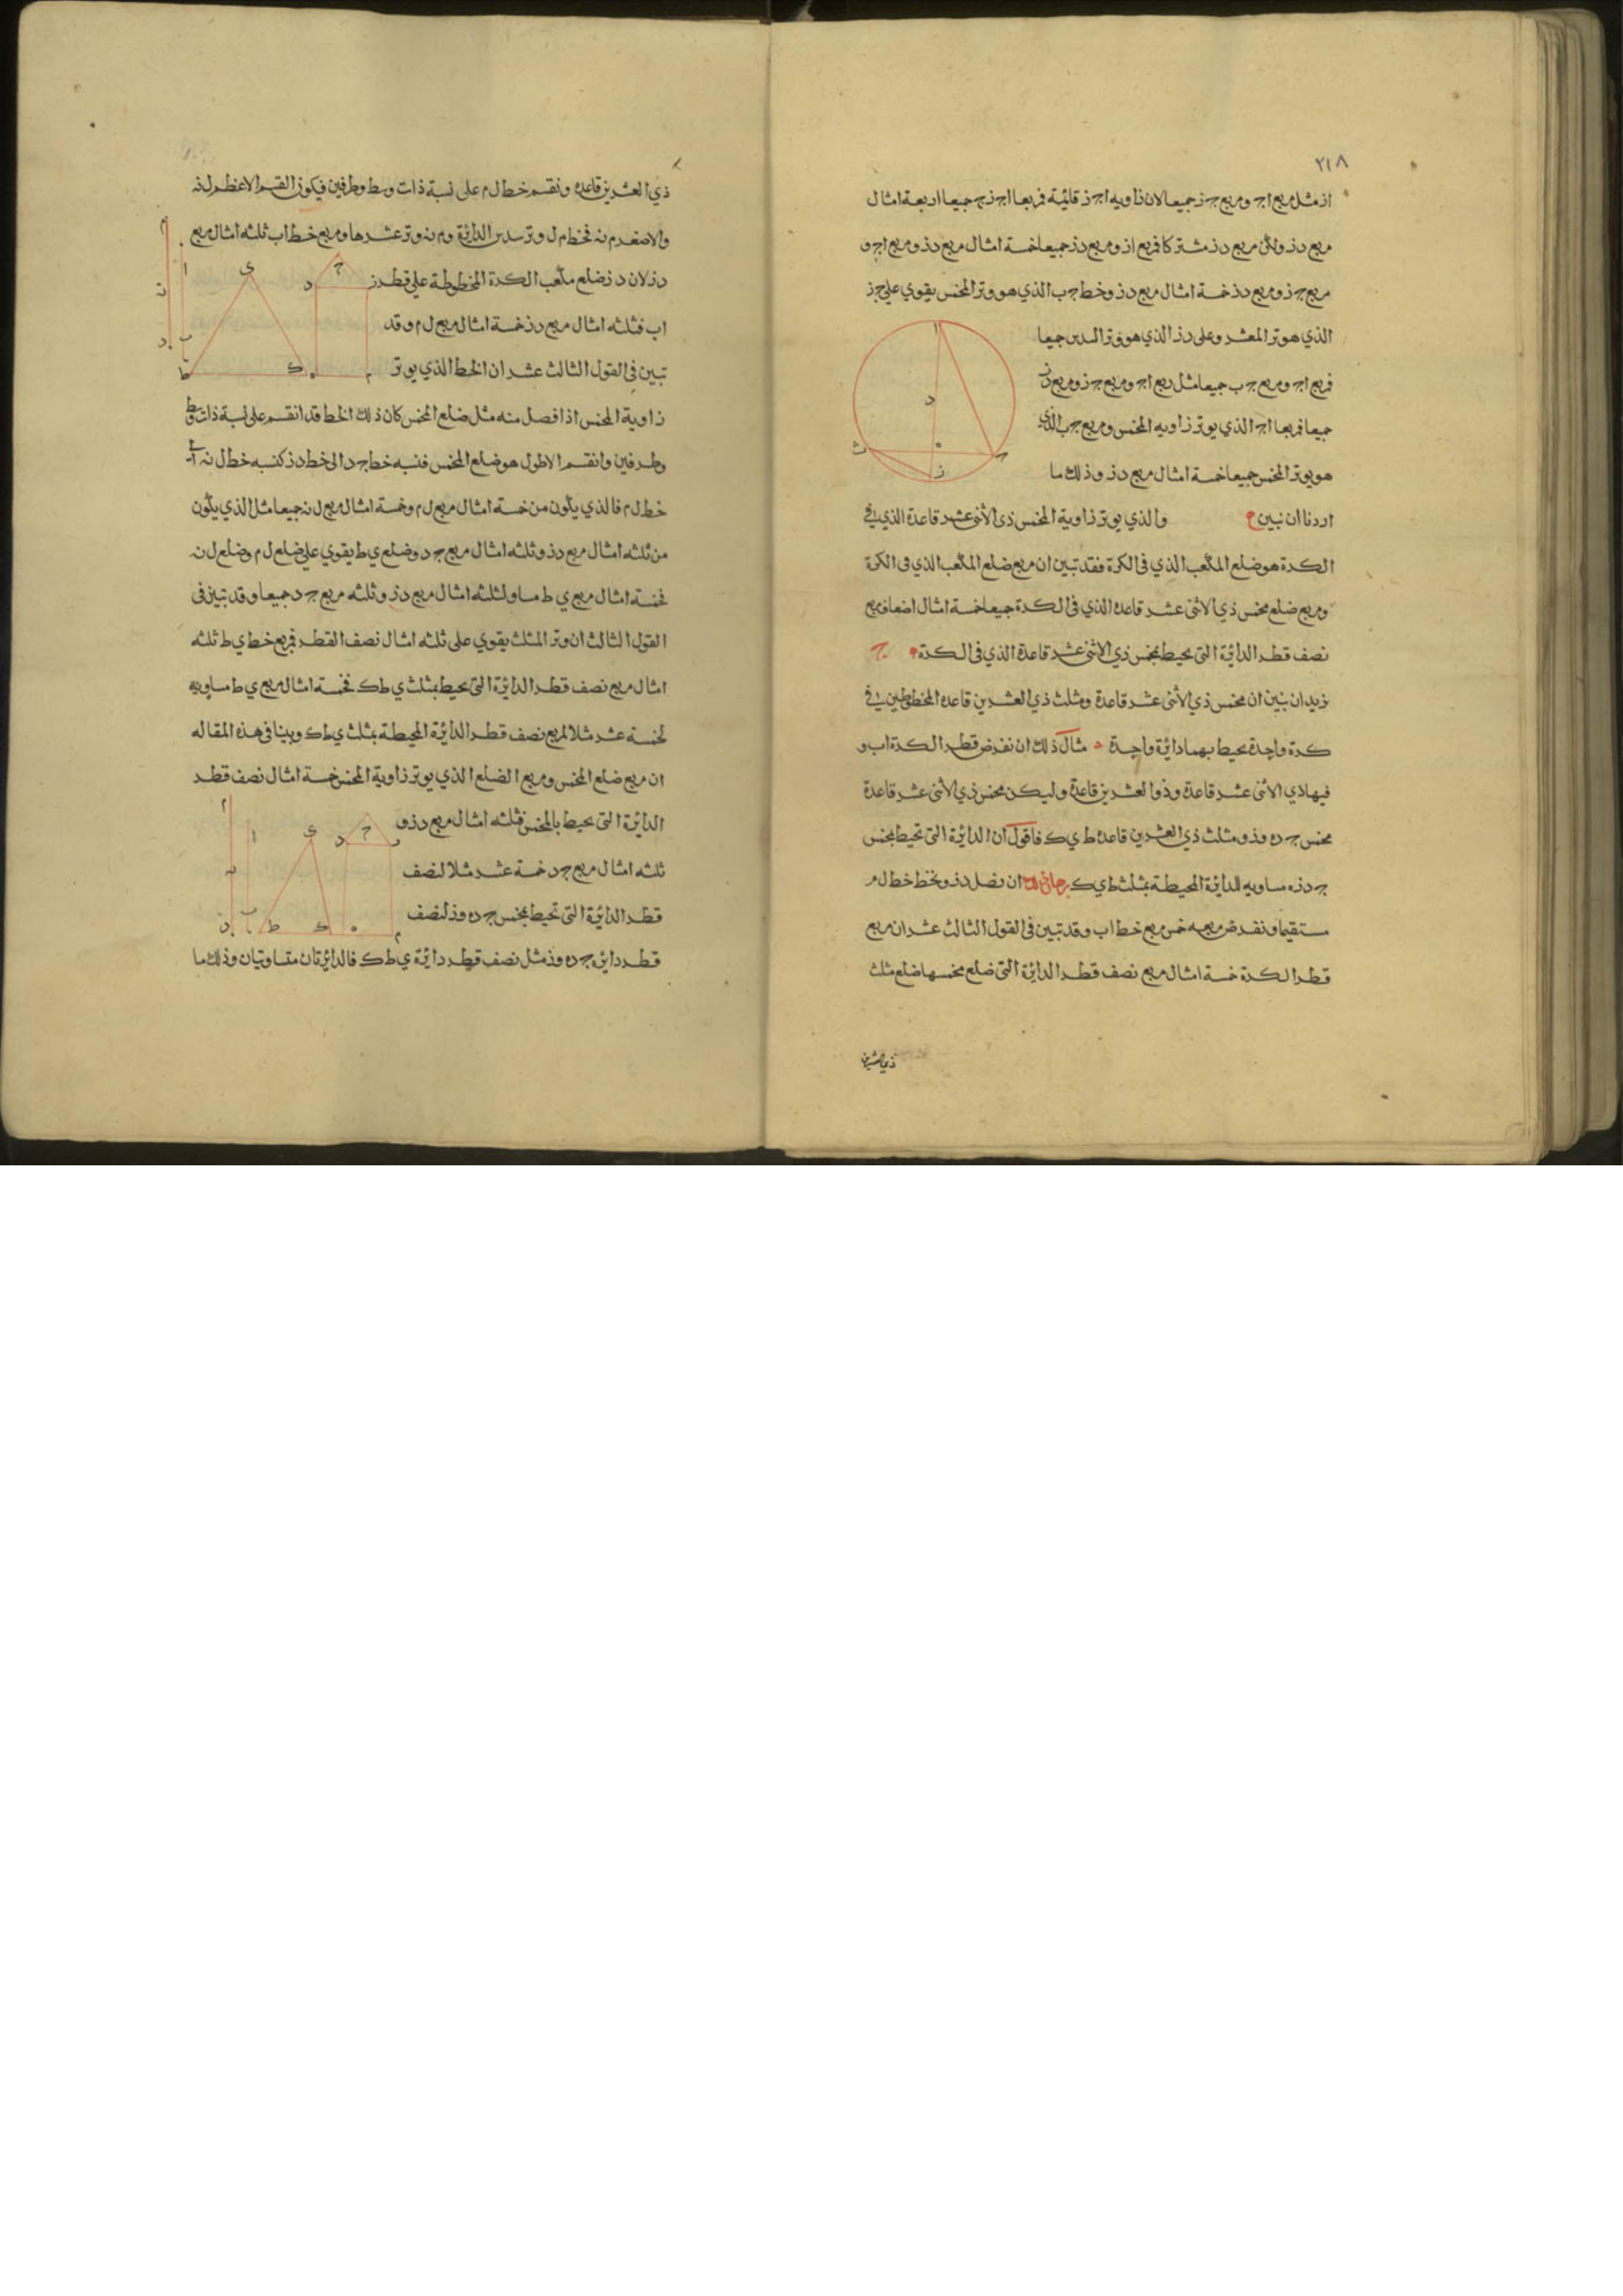 ٢١٨
از مثل مربع اج ومربع ج ز جميعا لان زاويه اج ز قائمة فمربعا اج ز ج جميعا اربعة امثال
مربع د ز وليكن مربع د ز مشتركا فمربع از ومربع د ز جميعا خمسة امثال مربع د ز ومربع اج و
مربع ج ز ومربع د ز خمسة امثال مربع د ز وخط ج ب الذي هو وتر المخمس يقوي على ج ز
الذي هو وتر المعشر وعلى د ز الذي هو وتر المسدس جميعا
فمربع اج ومربع ج ب جميعا مثل مربع اج ومربع ج ز ومربع د ز
جميعا فمربعا اج الذي يوتر زاويه المخمس ومربع ج ب الذي
هو يوتر المخمس جميعا خمسة امثال مربع د ز وذلك ما
اردنا ان نبين والذي يوتر زاوية المخمس ذي الاثنى عشر قاعدة الذي في
الكرة هو ضلع المكعب الذي في الكرة فقد تبين ان مربع ضلع المكعب الذي في الكرة
ومربع ضلع مخمس ذي الاثنى عشر قاعدة الذي في الكرة جميعا خمسة امثال اضعاف مربع
نصف قطر الدائرة التي يحيط بمخمس ذي الاثنى عشر قاعدة الذي في الكرة ج
نريد ان نبين ان مخمس ذي الاثنى عشر قاعدة ومثلث ذي العشرين قاعدة المخطوطين في
كرة واحدة يحيط بهما دائرة واحدة مثال ذلك ان نفرض قطر الكرة اب و
فيها ذي الاثنى عشر قاعدة وذو العشرين قاعدة وليكن مخمس ذي الاثنى عشر قاعدة
مخمس ج د ه و ز ومثلث ذي العشرين قاعدة ط ي ك فاقول ان الدائرة التي تحيط بمخمس
ج د ز ه مساويه للدائرة المحيطة بمثلث ط ي ك برهان ذلك ان نصل د ز ونخط خط ل م
مستقيما ونفرض مربعه خمس مربع خط اب وقد تبين في القول الثالث عشر ان مربع
قطر الكرة خمسة امثال مربع نصف قطر الدائرة التي ضلع مخمسها ضلع مثلث
ذي العشرين
ذي العشرين قاعدة ونقسم خط ل م على نسبة ذات وسط وطرفين فيكون القسم الاعظم ل ن
والاصغر م ن فخط م ل وتر سدس الدائرة و م ن وتر عشرها ومربع خط اب ثلثه امثال مربع
د ز لان د ز ضلع مكعب الكرة المخطوطة على قطر
اب فثلثه امثال مربع د ز خمسة امثال مربع ل م وقد
تبين في القول الثالث عشر ان الخط الذي يوتر
زاوية المخمس اذا فصل منه مثل ضلع المخمس كان ذلك الخط قد انقسم على نسبة ذات وسط
وطرفين وانقسم الاطول هو ضلع المخمس فنسبه خط ج د الى خط د ز كنسبه خط ل ن الى
خط ل م فالذي يكون من خمسة امثال مربع ل م وخمسة امثال مربع ل ن جميعا مثل الذي يكون
من ثلثه امثال مربع د ز وثلثه امثال مربع ج د وضلع ي ط يقوي على ضلع ل م وضلع ل ن
فخمسة امثال مربع ي ط مساو لثلثه امثال مربع د ز وثلثه مربع ج د جميعا وقد تبين في
القول الثالث ان وتر المثلث يقوي على ثلثه امثال نصف القطر فمربع خط ي ط ثلثه
امثال مربع نصف قطر الدائرة التي يحيط بمثلث ي ط ك فخمسة امثال مربع ي ط مساويه
لخمسه عشر مثلا لمربع نصف قطر الدائرة المحيطة بمثلث ي ط ك وبينا في هذه المقاله
ان مربع ضلع المخمس ومربع الضلع الذي يوتر زاوية المخمس خمسة امثال نصف قطر
الدائرة التي يحيط بالمخمس فثلثه امثال مربع د ز و
ثلثه امثال مربع ج د خمسة عشر مثلا لنصف
قطر الدائرة التي تحيط بمخمس ج د ه و ز لنصف
قطر دائره ج د ه و ز مثل نصف قطر دائرة ي ط ك فالدائرتان متساويتان وذلك ما